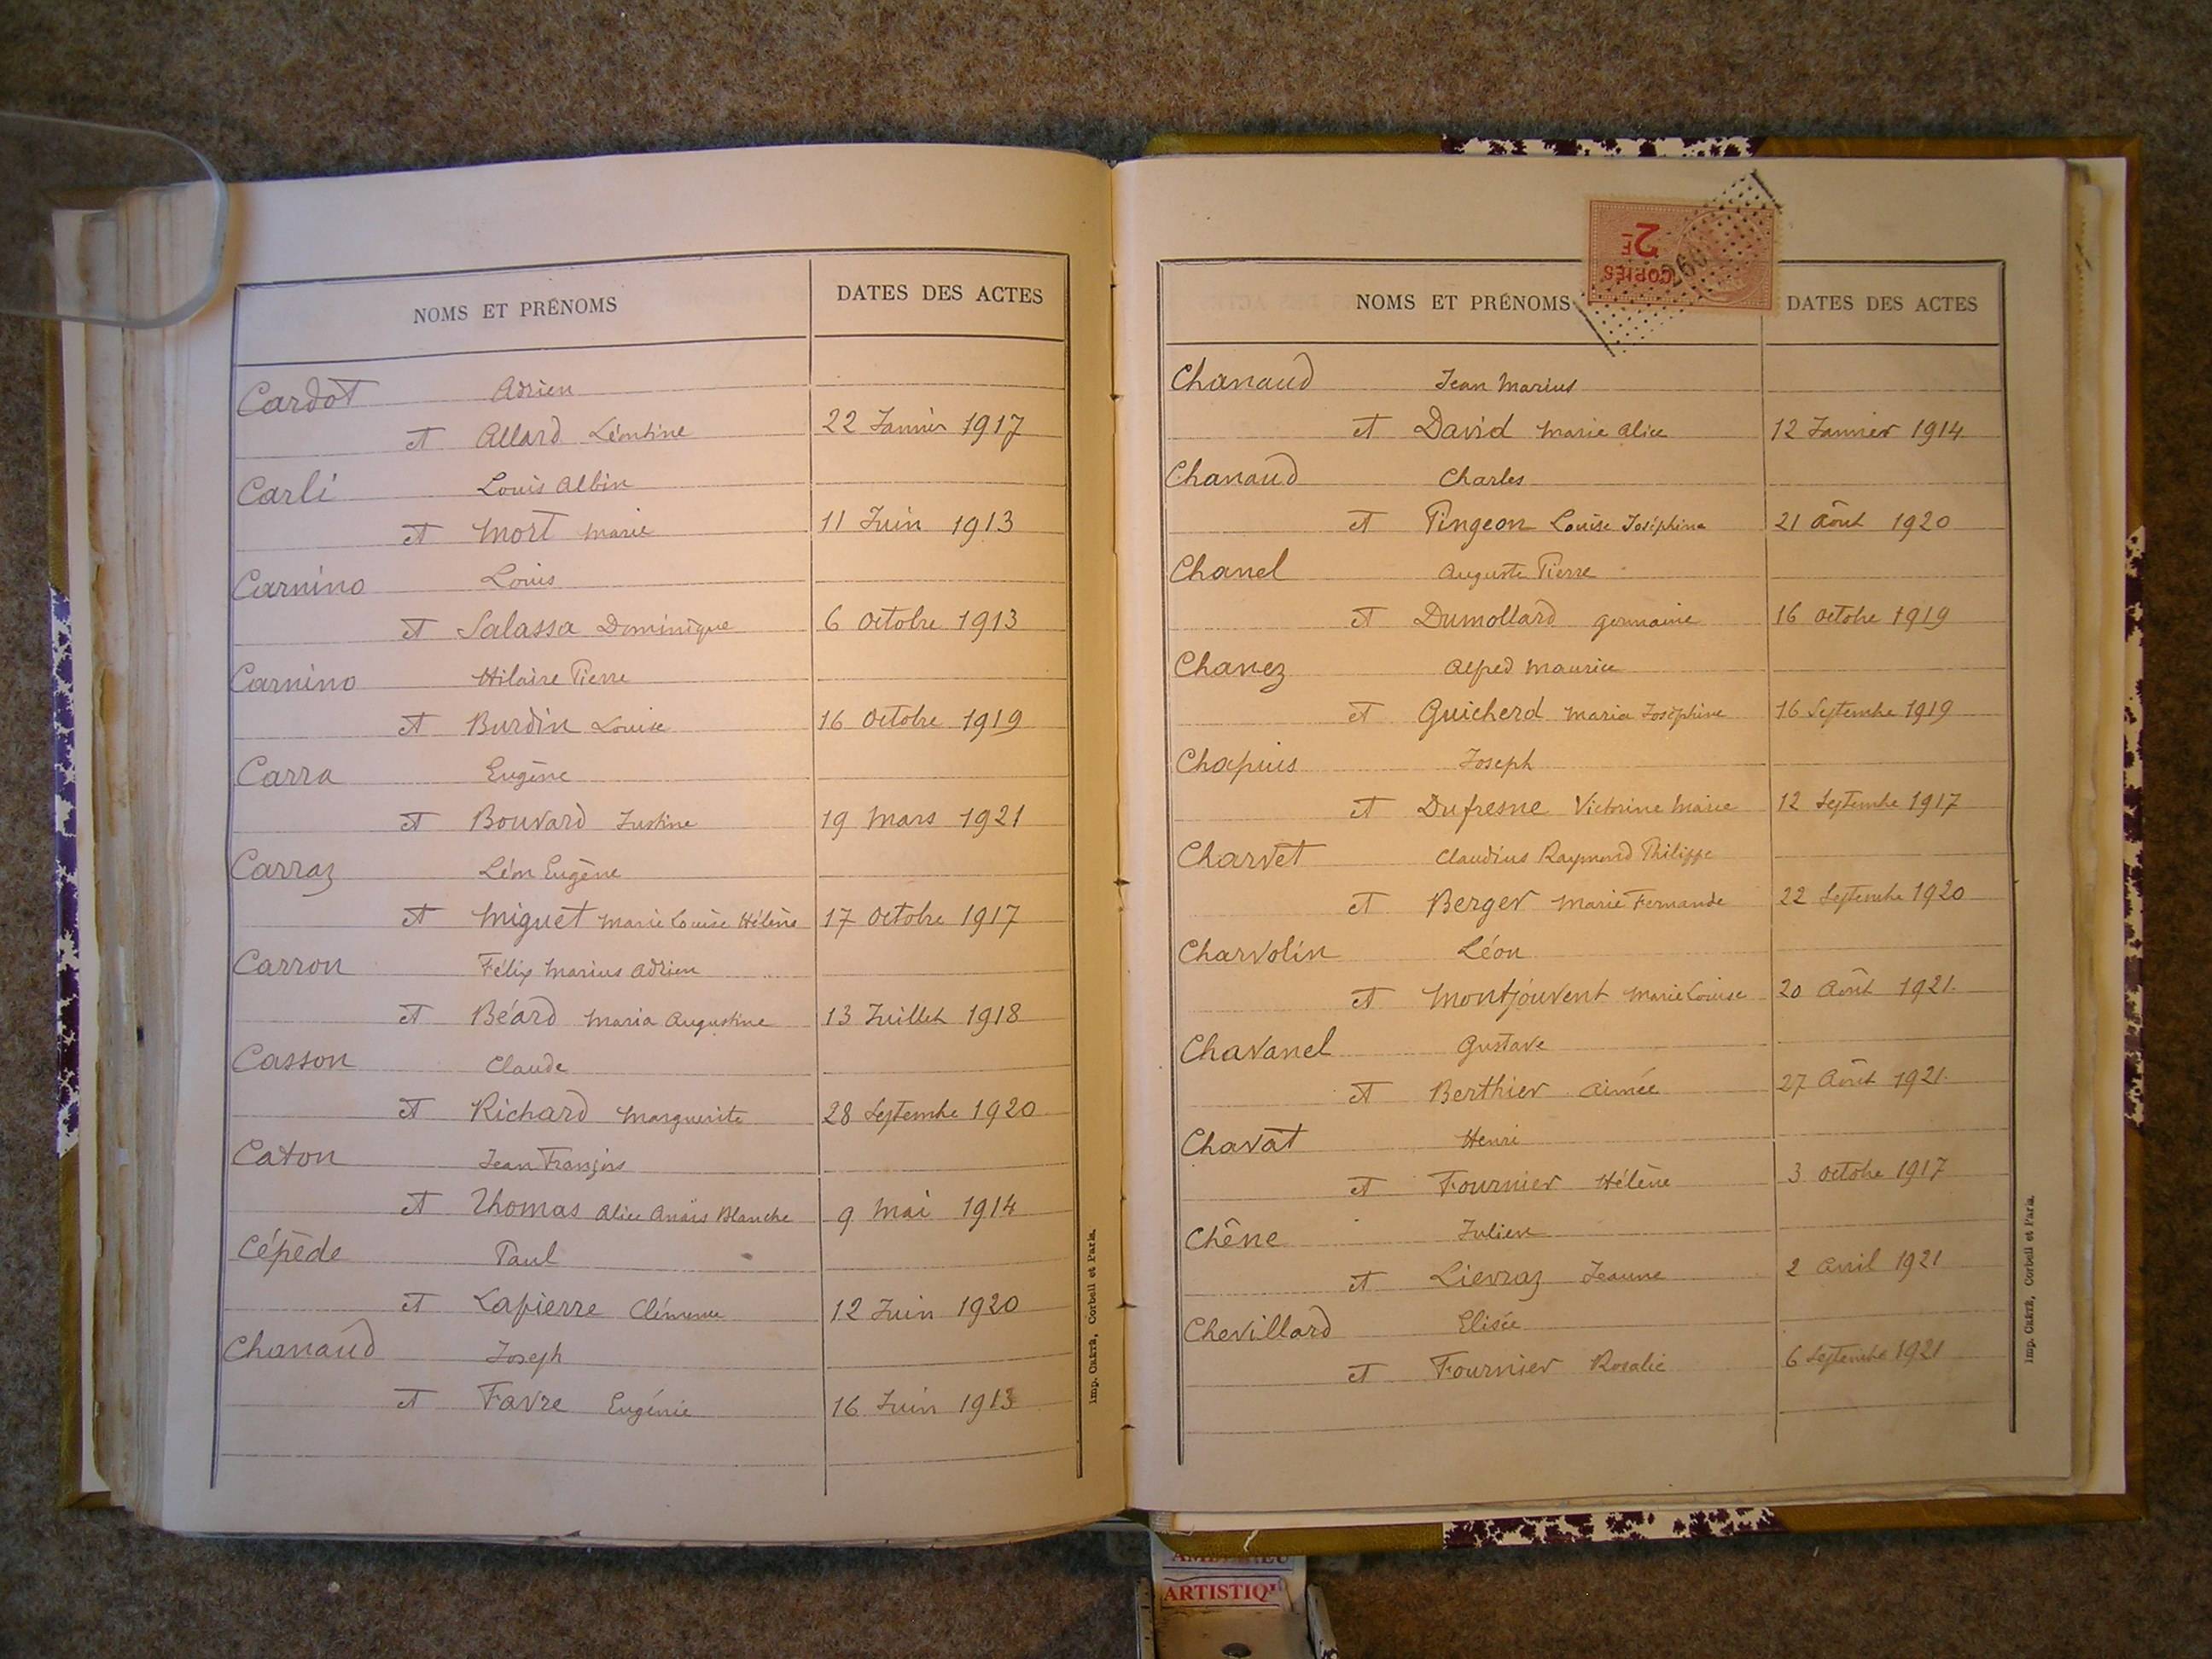 NOMS ET PRÉNOMS DATES DES ACTES
Cardot Adrien
et Allard Léontine 22 Janvier 1917
Carli Louis Albin
et Mort Marie 11 Juin 1913
Carnino Louis
et Salassa Dominique 6 Octobre 1913
Carnino Hilaire Pierre
et Burdin Louise 16 Octobre 1919
Carra Eugène
et Bouvard Justine 19 Mars 1921
Carraz Léon Eugène
et Miguet Marie Louise Hélène 17 Octobre 1917
Carron Félix Marius Adrien
et Béard Maria Augustine 13 Juillet 1918
Casson Claude
et Richard Marguerite 28 Septembre 1920
Caton Jean François
et Thomas Alice Anaïs Blanche 9 Mai 1914
Cépède Paul
et Lapierre Clémence 12 Juin 1920
Chanaud Joseph
et Favre Eugénie 16 Juin 1913
Imp. Crété, Corbeil et Paris.
COPIES
2F
NOMS ET PRÉNOMS DATES DES ACTES
Chanaud Jean Marius
et David Marie Alice 12 Janvier 1914
Chanaud Charles
et Pingeon Louise Joséphine 21 Août 1920
Chanel Auguste Pierre
et Dumollard Germaine 16 Octobre 1919
Chanez Alfred Maurice
et Guicherd Maria Joséphine 16 Septembre 1919
Chapuis Joseph
et Dufresne Victorine Marie 12 Septembre 1917
Charvet Claudius Raymond Philippe
et Berger Marie Fernande 22 Septembre 1920
Charvolin Léon
et Montjouvent Marie Louise 20 Août 1921
Chavanel Gustave
et Berthier Aimée 27 Août 1921
Chavat Henri
et Fournier Hélène 3 Octobre 1917
Chêne Julien
et Lievraz Jeanne 2 Avril 1921
Chevillard Elisée
et Fournier Rosalie 6 Septembre 1921
Imp. Crété, Corbeil et Paris.